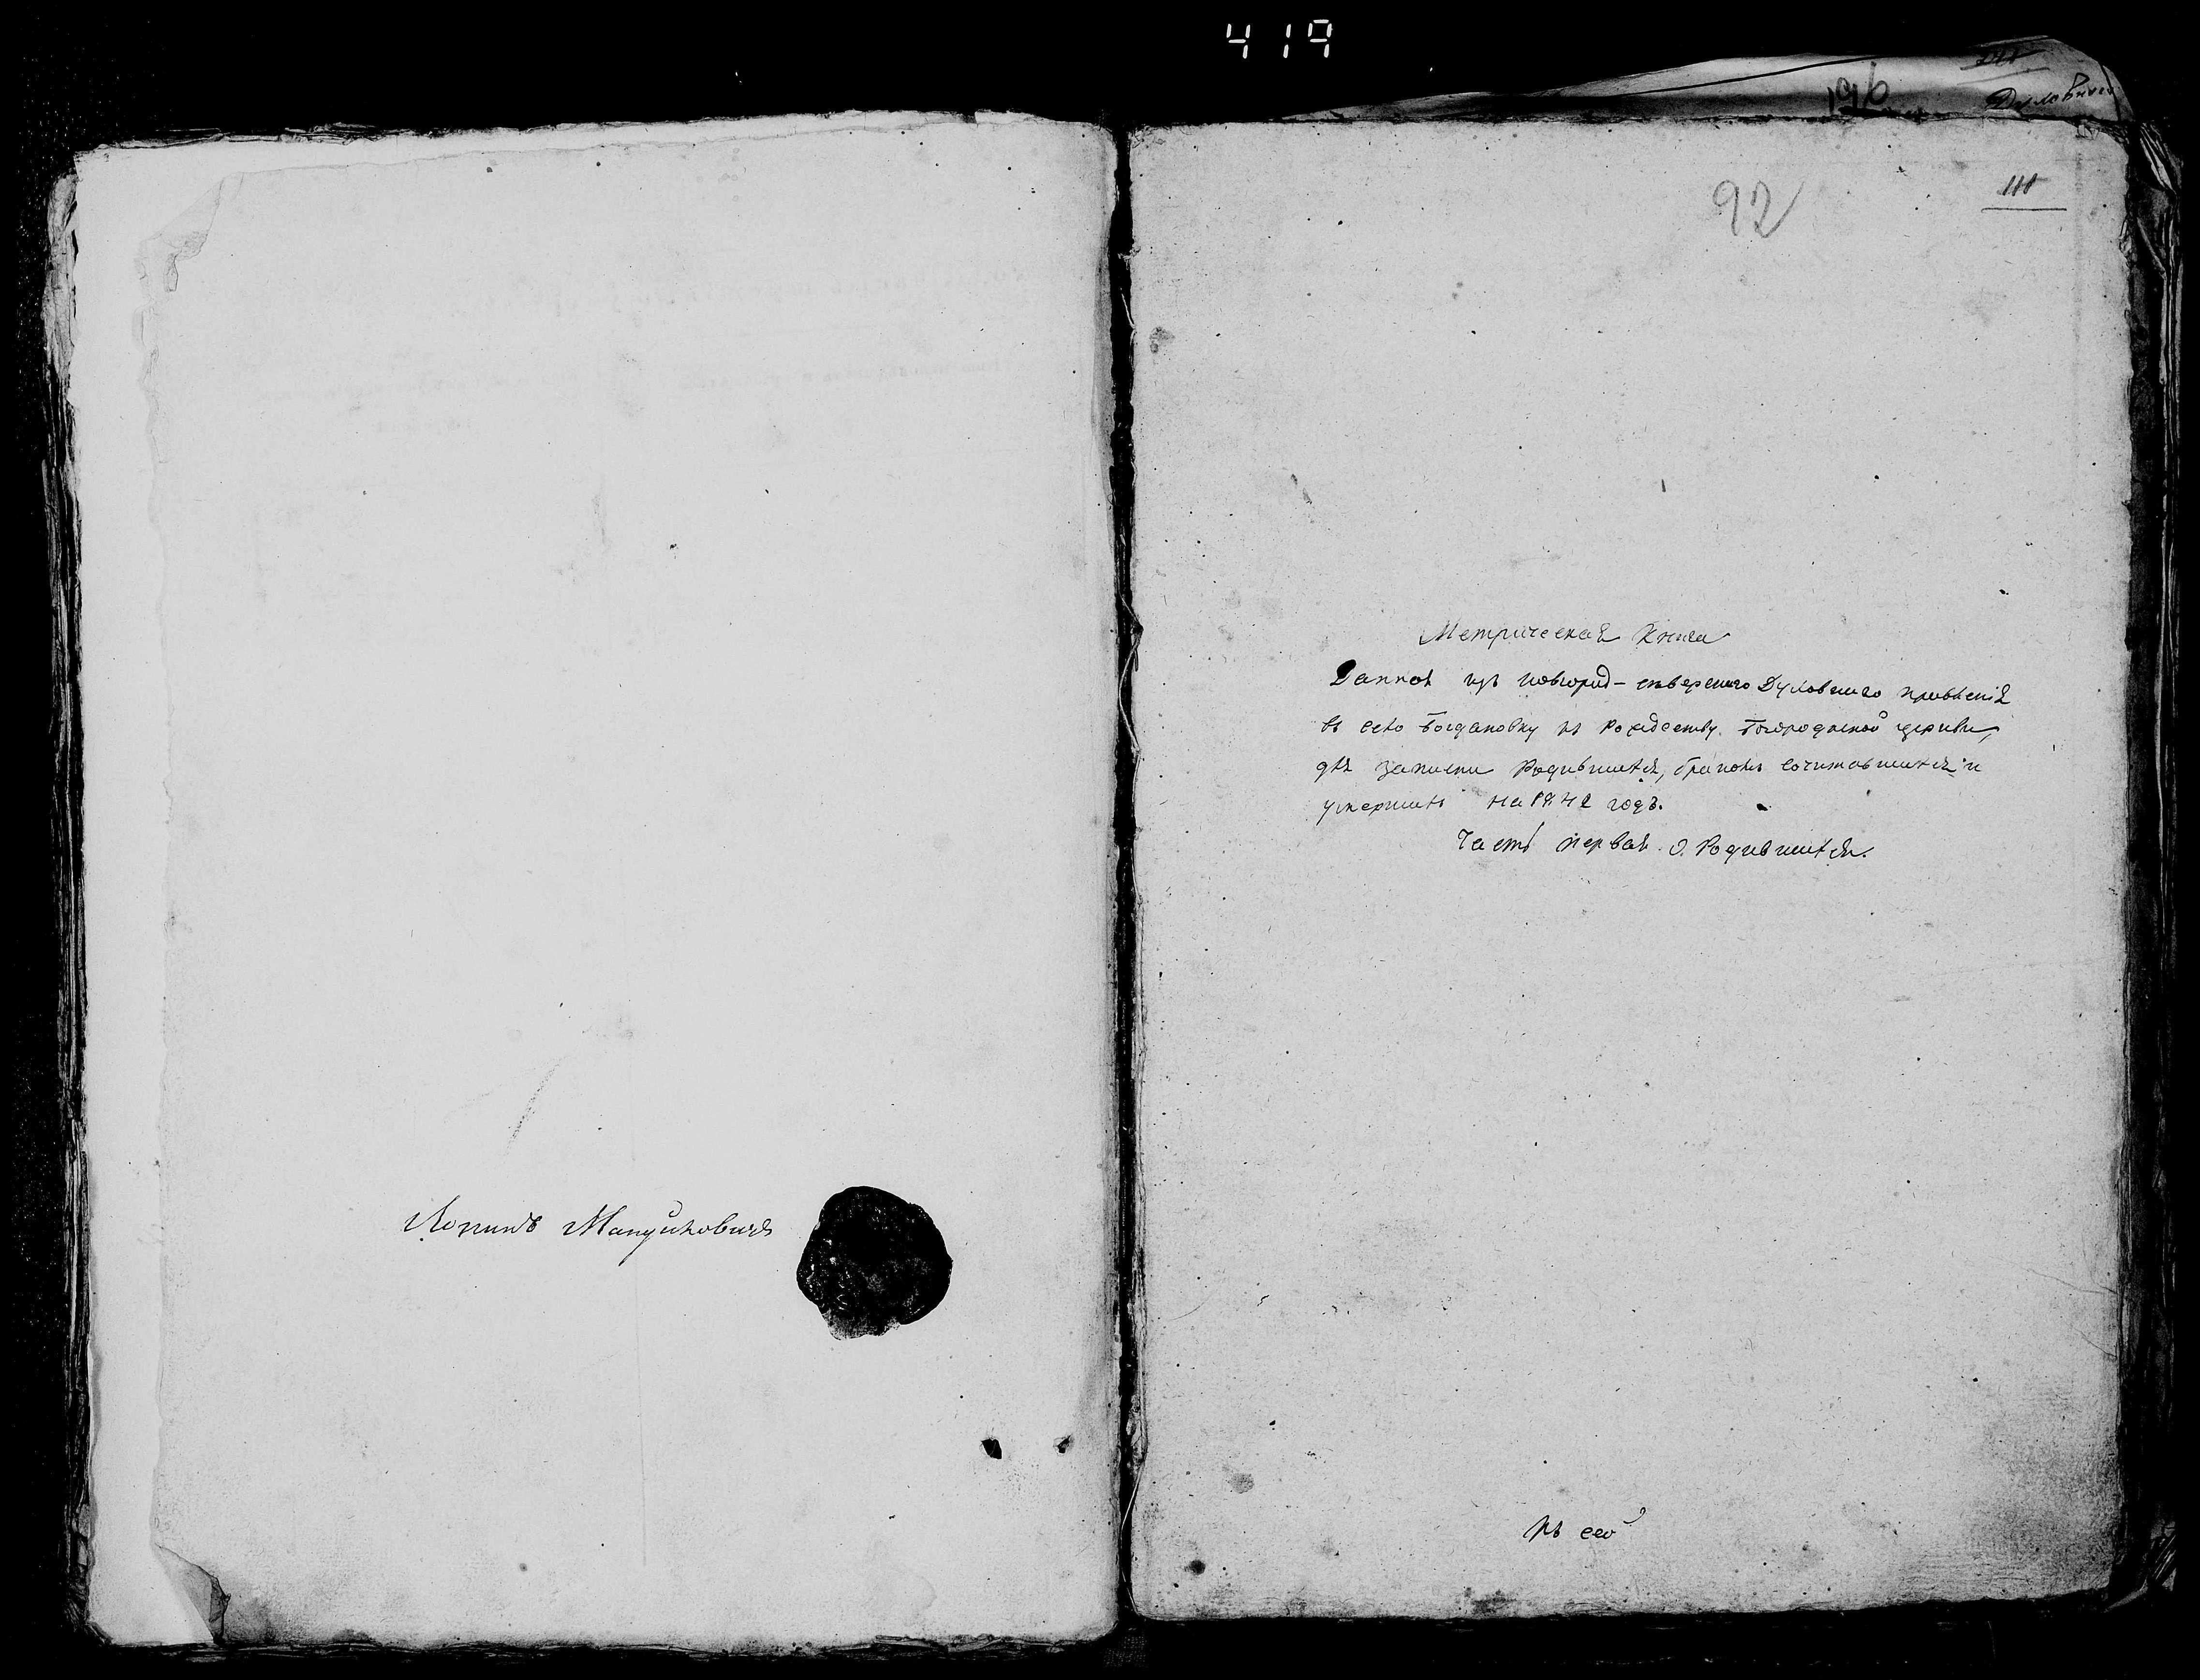 419
196
92
111
Логинъ Манцуйковичъ
Метрическая Книга
Данная изъ Новгород-северскаго Духовнаго правленія
въ село Богдановку къ Рождеству Богородичной церкви,
для записки Родившихся, бракомъ сочитавшихся и
умершихъ на 1842 годъ.
Часть первая о Родившихся.
Къ сей